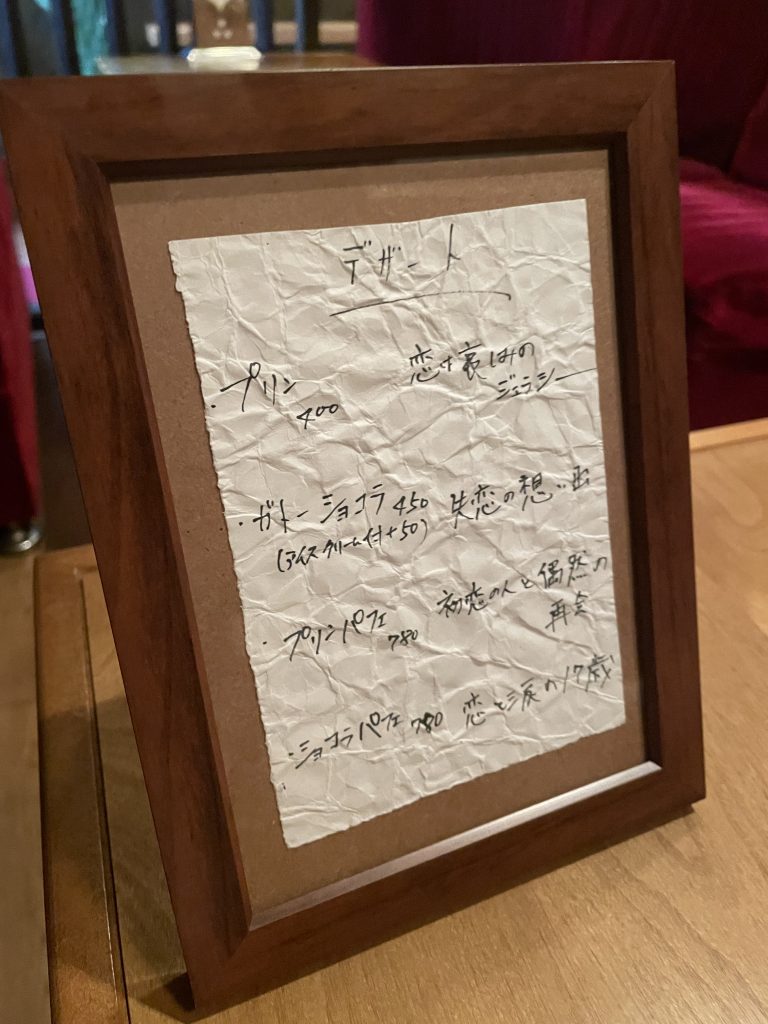 デザート
・プリン 400 恋は哀しみの
ジェラシー
・ガトーショコラ 450 失恋の想い出
(アイスクリーム付+50)
・プリンパフェ 780 初恋の人と偶然の
再会
・ショコラパフェ 780 恋と涙の17歳